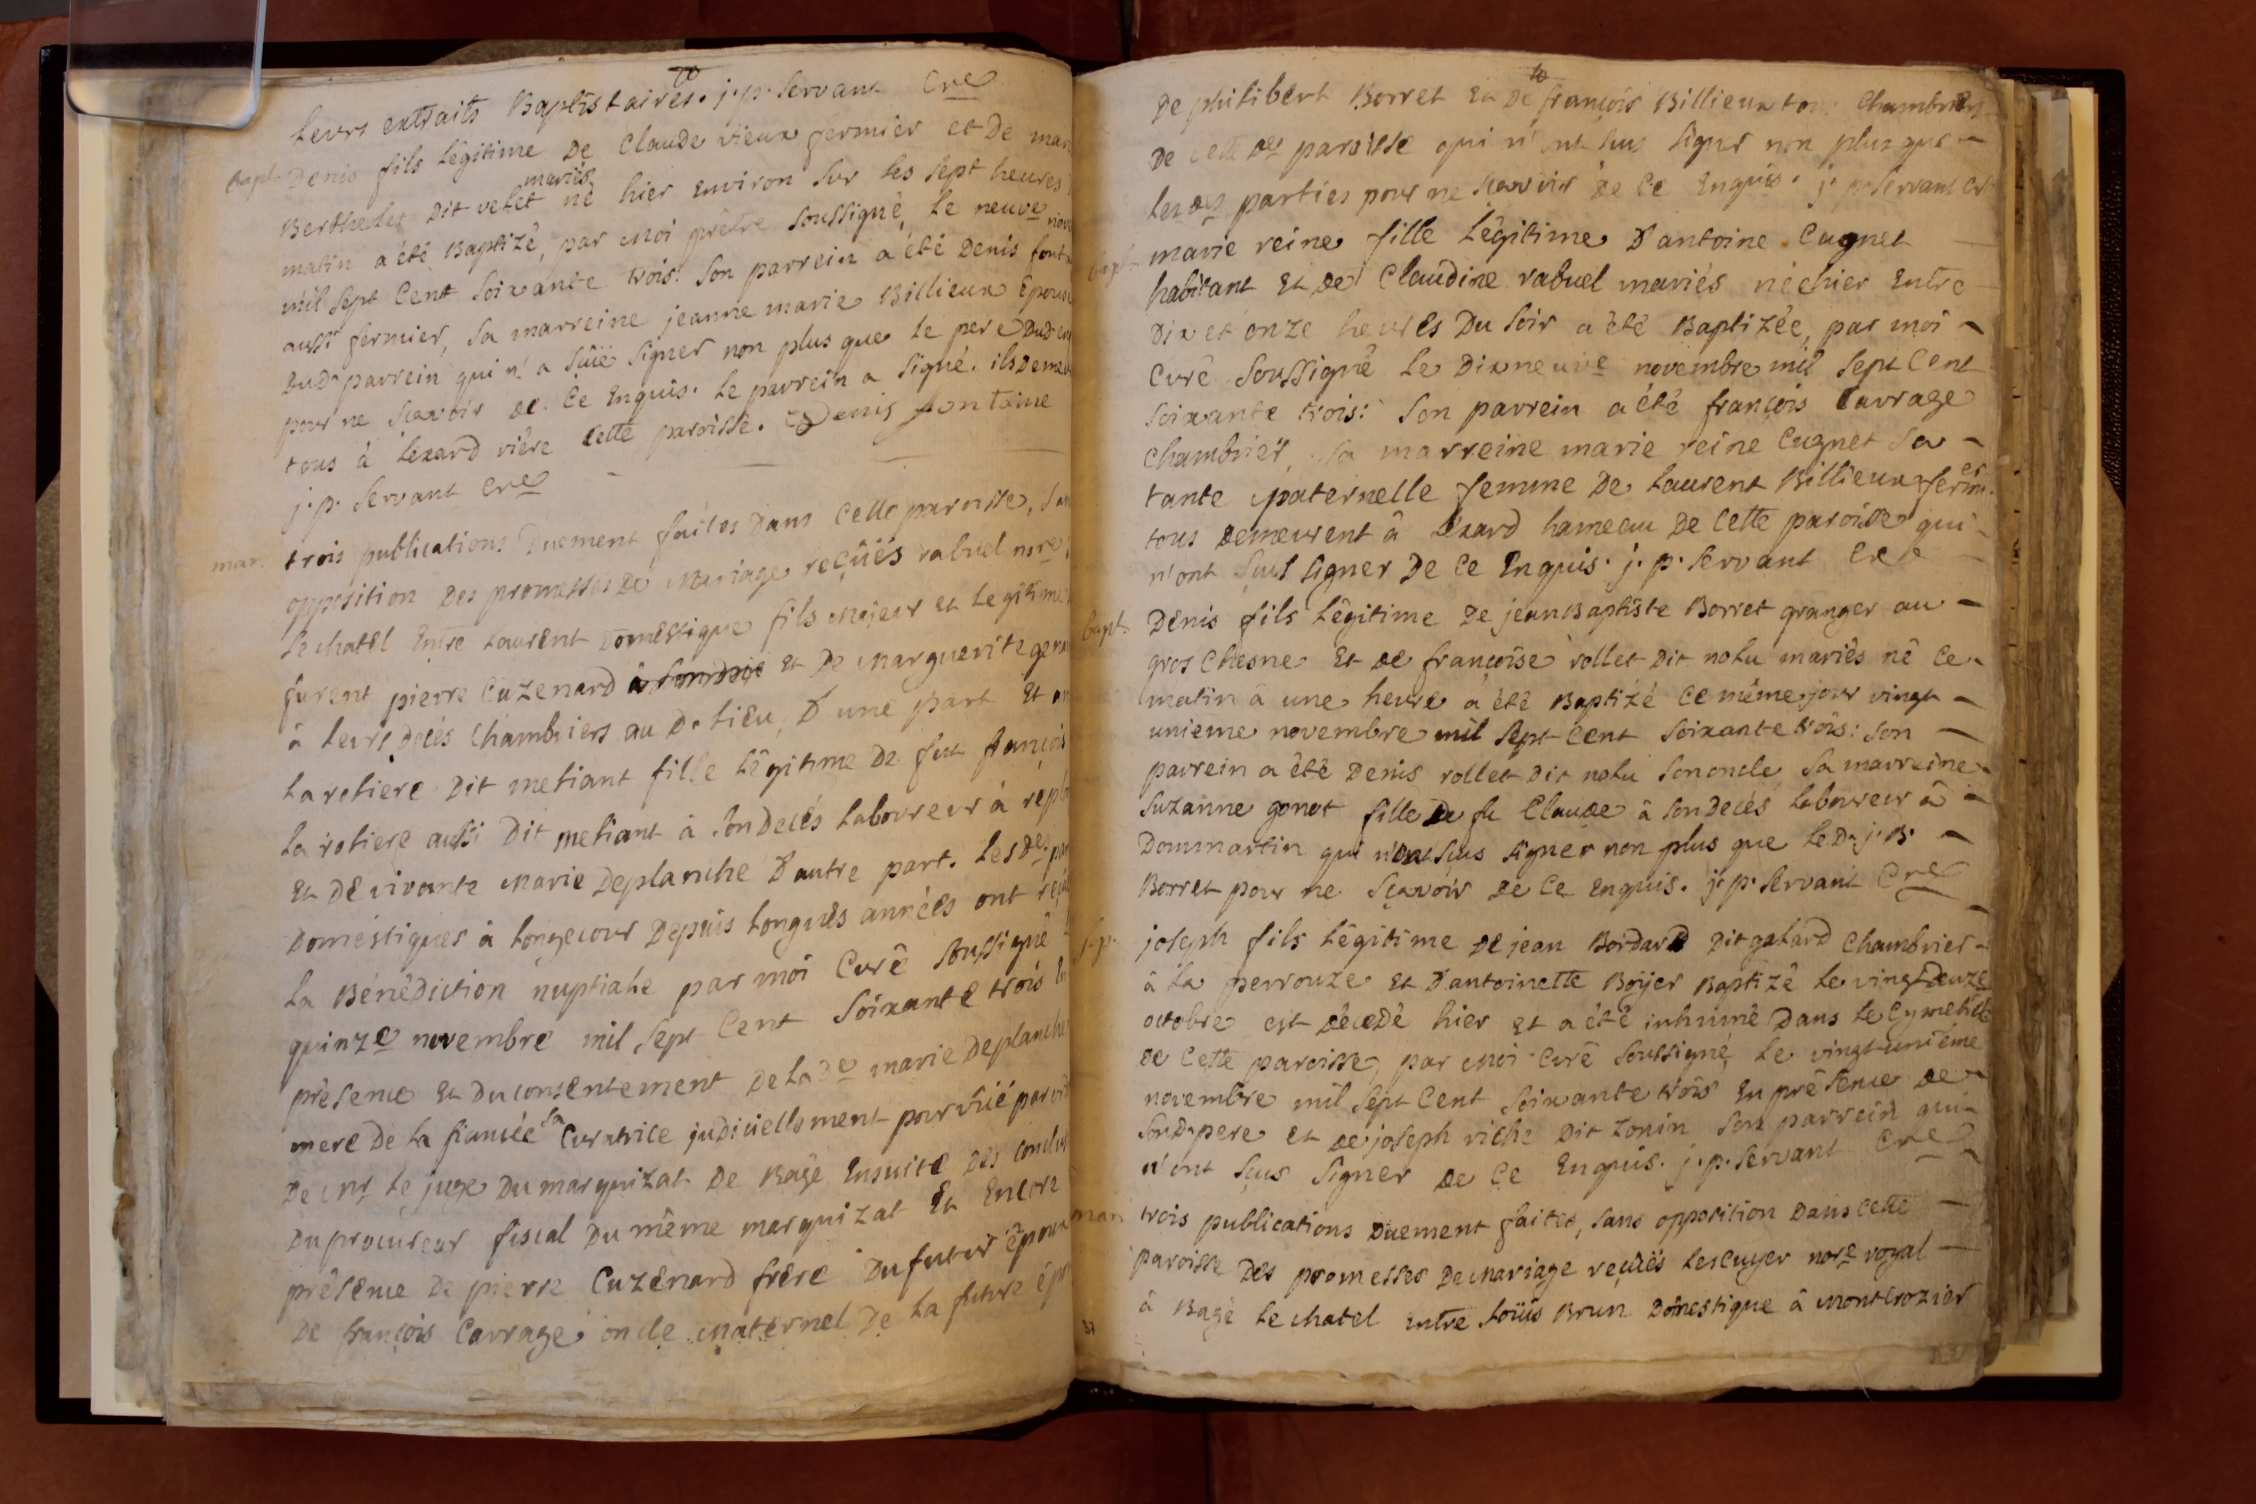 Leurs extraits Baptistaires. j. p. Servant Cre
bapt. Denis fils légitime De Claude vieux fermier et De mar
Berthelet Dit velet mariés né hier Environ Sur les Sept heures
matin a été Baptizé, par moi prêtre Soussigné, Le neuve nov
mil Sept Cent Soixante trois. Son parrein a été Denis font
aussi fermier, Sa marreine jeanne marie Billieux Epouse
Dud. parrein qui n'a Sçüe Signer non plus que Le pere Dud.
pour ne Sçavoir De Ce Enquis. Le parrein a Signé. ils Demeu
tous à Lexard rière Cette paroisse. Denis fontaine
j. p. Servant Cre
mar. trois publications Duement faites Dans Cette paroisse, San
opposition Des promesses De Mariage reçuës rabuel nore
Le chatel Entre Laurent Domestique fils Majeur et Legitime
furent pierre Cuzenard et De Marguerite
à Leurs Décés Chambriers au D. Lieu, D'une part Et
La rotiere Dit metiant fille Légitime De fut françois
La rotiere aussi Dit metiant à Son Décés Laboureur à
Et De vivante Marie Deplanche D'autre part. Les Des
Domestiques à Longecour Depuis Longues années ont
La Bénédiction nuptiale par moi Curé Soussigné
quinze novembre mil Sept Cent Soixante trois
présence Et Du consentement De La De marie Deplanche
mere De La fiancée Sa Curatrice judiciellement pourvüe par
De Mr Le juge Du marquizat De Bagé Ensuite Des
Du procureur fiscal Du même marquizat Et Encore
présence De pierre Cuzenard frere Du futur époux
De françois Carrage oncle maternel De La future
De philibert Borret Et De françois Billieux Chambriers
De Cette De paroisse qui n'ont Sus Signer non plus que
Les Des parties pour ne Sçavoir De Ce Enquis. j. p. Servant Cre
bapt. marie reine fille Légitime D'antoine Cugnet
habitant Et De Claudine rabuel mariés née hier Entre
Dix et onze heures Du Soir a été Baptizée, par moi
Curé Soussigné Le Dixneuve novembre mil Sept Cent
Soixante trois: Son parrein a été françois Carrage
Chambrier, Sa marreine marie reine Cugnet Sa
tante paternelle femme De Laurent Billieux
tous Demeurent à Lexard hameau De Cette paroisse qui
n'ont Sçus Signer De Ce Enquis. j. p. Servant Cre
bapt. Denis fils Légitime De jean Baptiste Borret granger au
gros Chesne Et De françoise rollet Dit notu mariés né Ce
matin à une heure a été Baptizé Ce même jour vingt
unieme novembre mil Sept Cent Soixante trois: Son
parrein a été Denis rollet Dit notu Son oncle, Sa marreine
Suzanne gonot fille De fu Claude à Son Décés Laboureur à
Dommartin qui n'ont Sçus Signer non plus que Le D. j. B.
Borret pour ne Sçavoir De Ce Enquis. j. p. Servant Cre
joseph fils Légitime De jean Boidard Dit galard Chambrier
à La perrouze Et D'antoinette Boyer Baptizé Le vingtDeuze
octobre est Décédé hier Et a été inhumé Dans Le Cymetiere
De Cette paroisse, par moi Curé Soussigné Le vingtunième
novembre mil Sept Cent Soixante trois En présence De
Sond. pere et De joseph riche Dit Zonin Son parrein qui
n'ont Sçus Signer De Ce Enquis. j. p. Servant Cre
mar. trois publications Duement faites, Sans opposition Dans Cette
paroisse Des promesses De Mariage reçuës Lescuyer nore royal
à Bagé Le chatel Entre Loüis Brun Domestique à Montcrozier